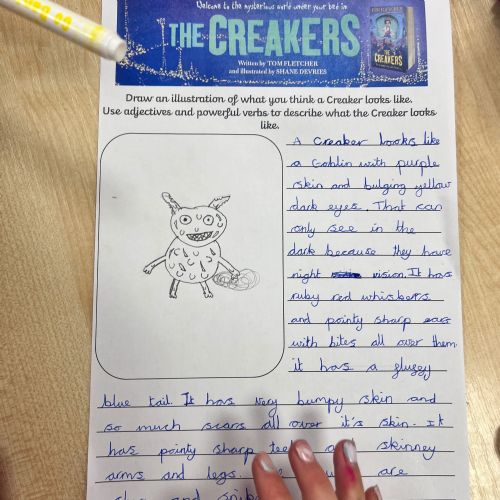 Welcome to the mysterious world under your bed in
THE CREAKERS
Written by TOM FLETCHER
and illustrated by SHANE DEVRIES
THE CREAKERS
Draw an illustration of what you think a Creaker looks like.
Use adjectives and powerful verbs to describe what the Creaker looks
like.
A Creaker looks like
a Goblin with purple
skin and bulging yellow
dark eyes. That can
only see in the
dark because they have
night vision. It has
ruby red whiskers
and pointy sharp ears
with bites all over them
it has a fluffy
blue tail. It has very bumpy skin and
so much scars all over it's skin. It
has pointy sharp skinney
arms and legs. are
and